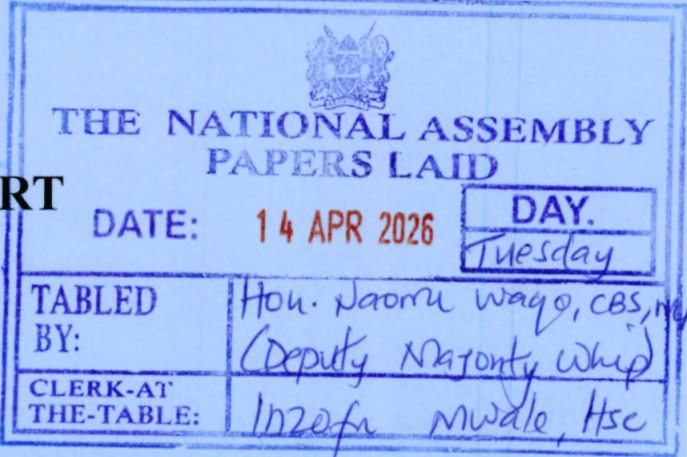 THE NATIONAL ASSEMBLY
PAPERS LAID
RT
DATE: 14 APR 2026 DAY.
Tuesday
TABLED BY: Hon. Naomi Waqo, CBS,
(Deputy Majority Whip)
CLERK-AT THE-TABLE: Mwale, Hsc